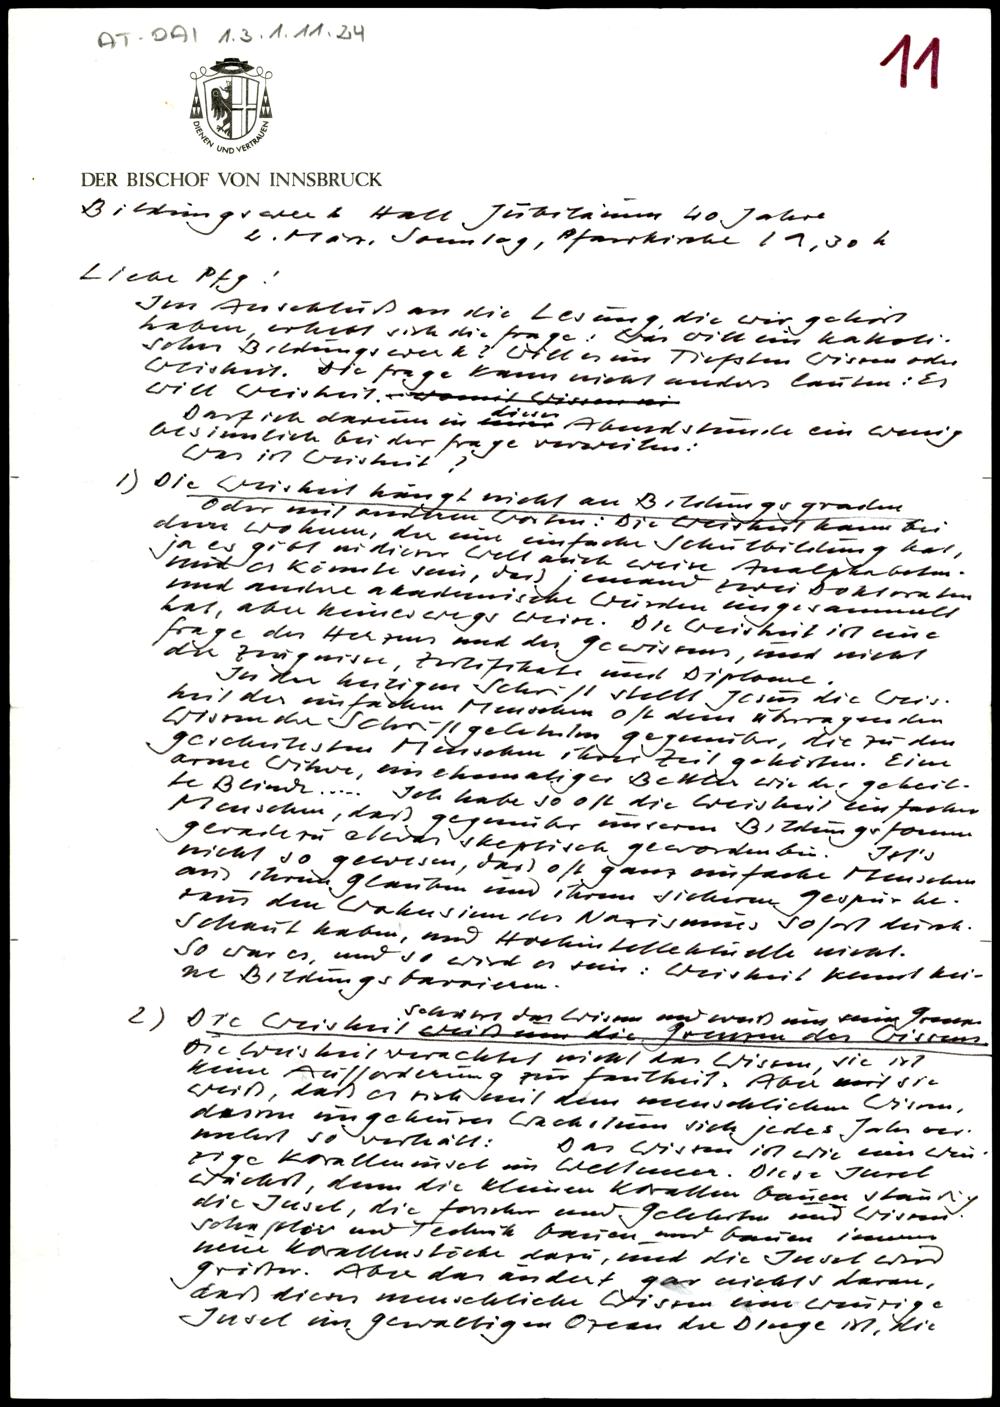 AT-DAI 1.3.1.11.24
11
DIENEN UND VERTRAUEN
DER BISCHOF VON INNSBRUCK
Bildungswerk Hall Jubiläum 40 Jahre
2. März, Sonntag, Pfarrkirche 19,30 h
Liebe Pfg!
Im Anschluß an die Lesung, die wir gehört
haben, erhebt sich die Frage: Was will ein katholi-
sches Bildungswerk? Will es im Tiefsten Wissen oder
Weisheit. Die Frage kann nicht anders lauten: Es
will Weisheit.
Darf ich darum in dieser Abendstunde ein wenig
besinnlich bei der Frage verweilen:
Was ist Weisheit?
1) Die Weisheit hängt nicht an Bildungsgraden
Oder mit anderen Worten: Die Weisheit kann bei
dem wohnen, der eine einfache Schulbildung hat,
ja es gibt in dieser Welt auch weise Analphabeten.
Und es könnte sein, daß jemand zwei Doktorate
und andere akademische Würden eingesammelt
hat, aber keineswegs weise. Die Weisheit ist eine
Frage des Herzens und des Gewissens, und nicht
der Zeugnisse, Zertifikate und Diplome.
In der heiligen Schrift stellt Jesus die Weis-
heit der einfachen Menschen oft dem überragenden
Wissen der Schriftgelehrten gegenüber, die zu den
gescheitesten Menschen ihrer Zeit gehörten. Eine
arme Witwe, ein ehemaliger Bettler wie der geheil-
te Blinde..... Ich habe so oft die Weisheit einfacher
Menschen, daß gegenüber unseren Bildungsformen
geradezu etwas skeptisch geworden bin. Ist's
nicht so gewesen, daß oft ganz einfache Menschen
aus ihrem Glauben und ihrem sicheren Gespür he-
raus den Wahnsinn des Nazismus sofort durch-
schaut haben, und Hochintellektuelle nicht.
So war es, und so wird es sein: Weisheit kennt kei-
ne Bildungsbarrieren.
schätzt das Wissen und weiß um seine Grenzen
2) Die Weisheit weiß um die Grenzen des Wissens
Die Weisheit verachtet nicht das Wissen, sie ist
keine Aufforderung zur Faulheit. Aber weil sie
weiß, daß es sich mit dem menschlichen Wissen,
dessen ungeheures Wachstum sich jedes Jahr ver-
mehrt so verhält: Das Wissen ist wie eine win-
zige Koralleninsel im Weltmeer. Diese Insel
wächst, denn die kleinen Korallen bauen ständig
die Insel, die Forscher und Gelehrten und Wissen-
schaftler und Technik bauen und bauen immer
neue Korallenstöcke dazu, und die Insel wird
größer. Aber das ändert gar nichts daran,
daß dieses menschliche Wissen eine winzige
Insel im gewaltigen Ozean der Dinge ist, die